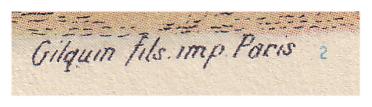 Gilquin fils. imp. Paris 2